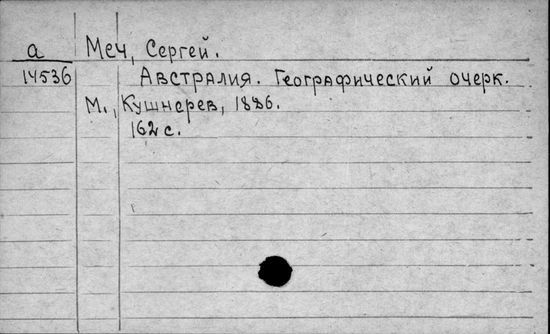 а Меч, Сергей.
14536 Австралия. Географический очерк.
М., Кушнерев, 1886.
162 с.